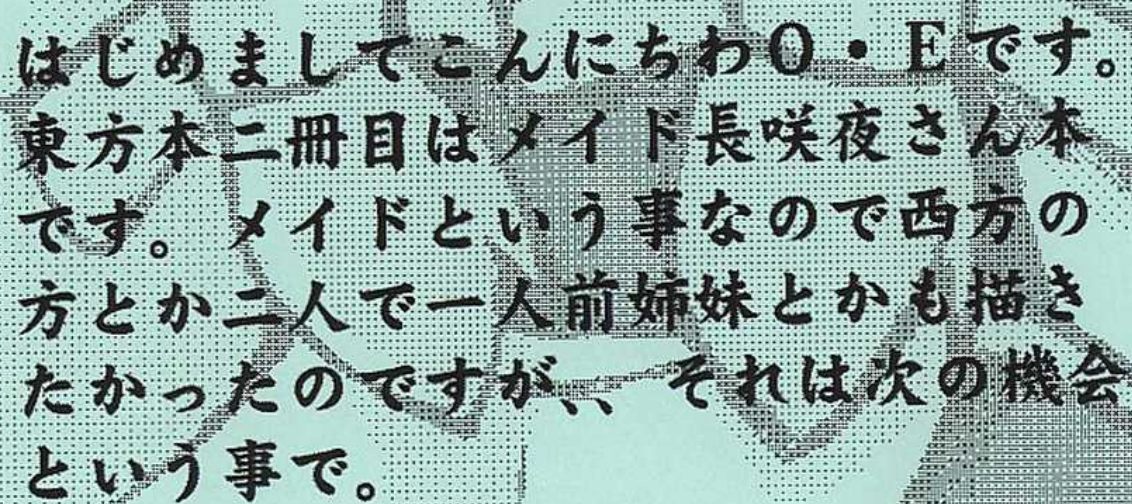 はじめましてこんにちわO・Eです。
東方本二冊目はメイド長咲夜さん本
です。メイドという事なので西方の
方とか二人で一人前姉妹とかも描き
たかったのですが、、それは次の機会
という事で。